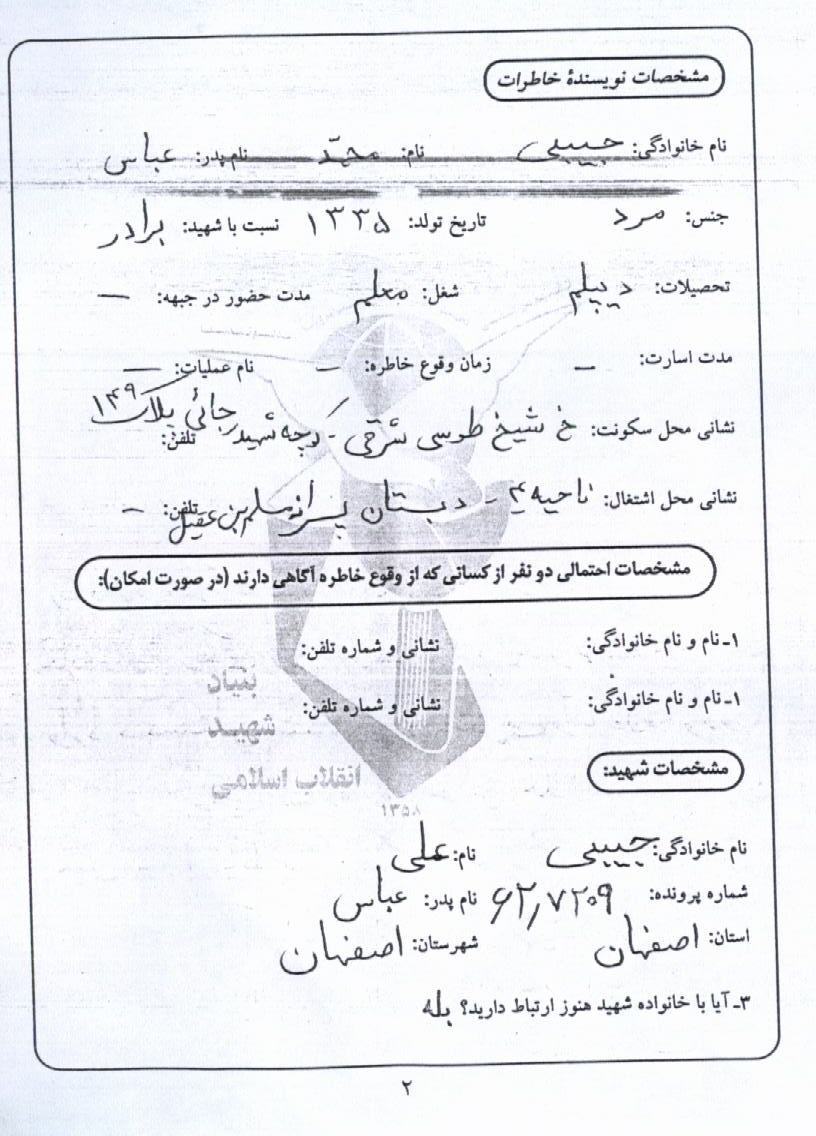 مشخصات نویسندهٔ خاطرات
نام خانوادگی: حبیبی نام: محمّد نام پدر: عباس
جنس: مرد تاریخ تولد: ۱۳۳۵ نسبت با شهید: برادر
تحصیلات: دیپلم شغل: معلم مدت حضور در جبهه: —
مدت اسارت: — زمان وقوع خاطره: — نام عملیات: —
نشانی محل سکونت: خ شیخ طوسی شرقی - کوچه شهید رجائی پلاک ۱۴۹ تلفن:
نشانی محل اشتغال: ناحیه ۴ - دبستان پسرانه مسلم بن عقیل تلفن: —
مشخصات احتمالی دو نفر از کسانی که از وقوع خاطره آگاهی دارند (در صورت امکان):
۱ـ نام و نام خانوادگی: نشانی و شماره تلفن:
۱ـ نام و نام خانوادگی: نشانی و شماره تلفن:
بنیاد
شهید
انقلاب اسلامی
۱۳۵۸
مشخصات شهید:
نام خانوادگی: حبیبی نام: علی
شماره پرونده: ۶۲٫۷۲۰۹ نام پدر: عباس
استان: اصفهان شهرستان: اصفهان
۳ـ آیا با خانواده شهید هنوز ارتباط دارید؟ بله
۲